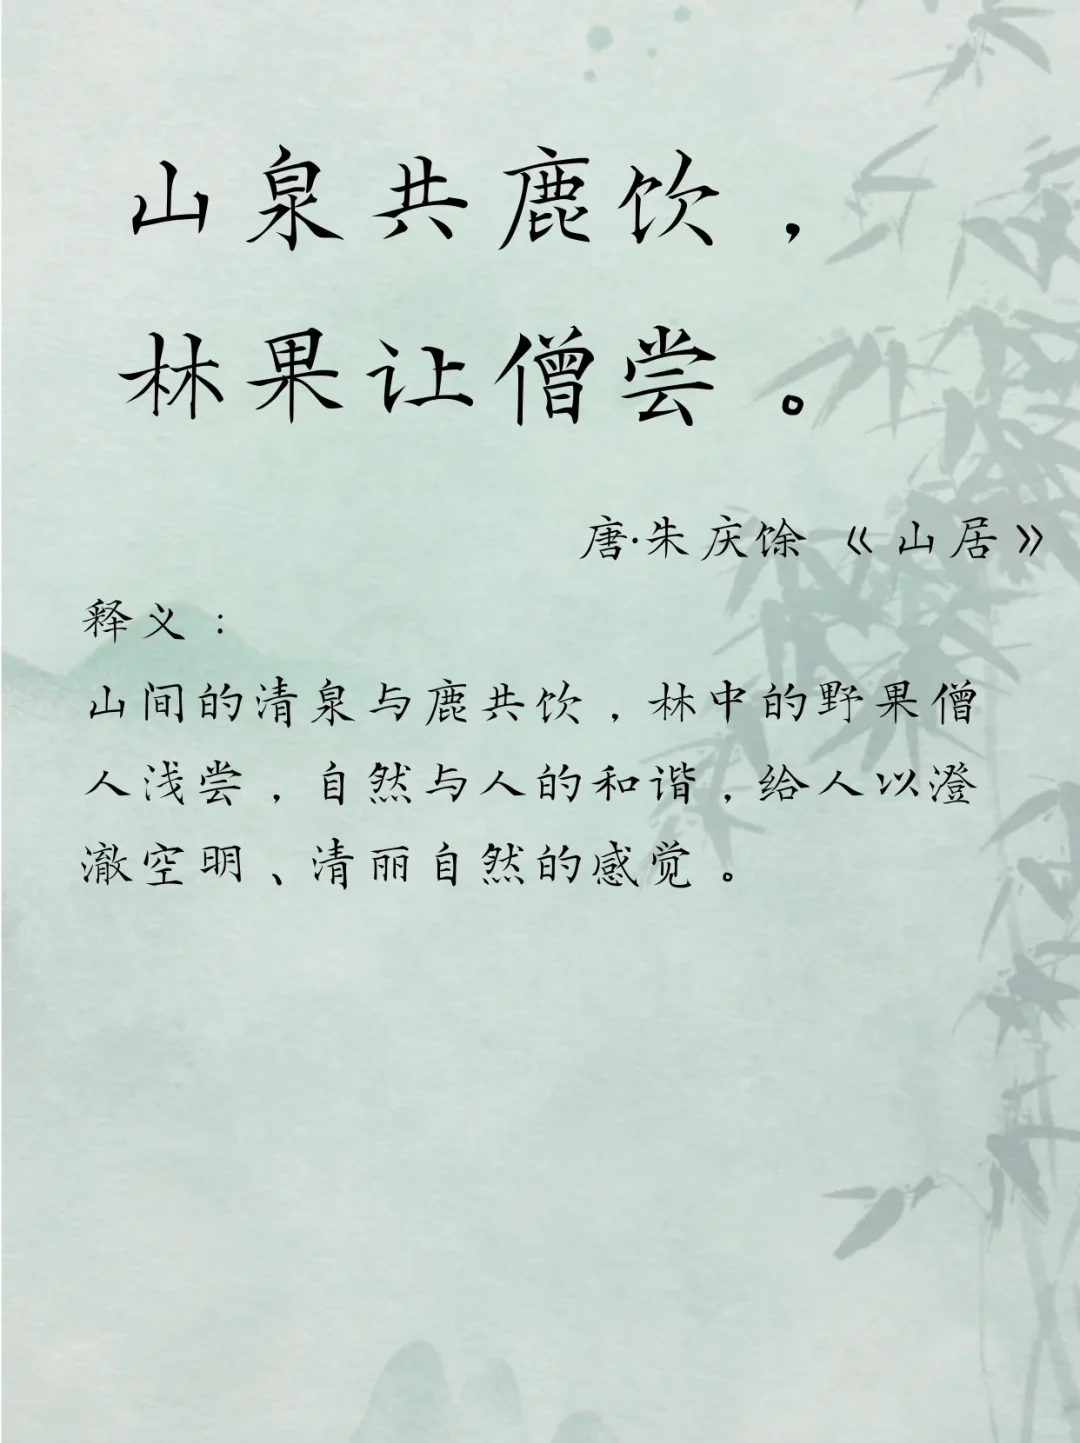 山泉共鹿饮，
林果让僧尝。
唐·朱庆馀《山居》
释义：
山间的清泉与鹿共饮，林中的野果僧
人浅尝，自然与人的和谐，给人以澄
澈空明、清丽自然的感觉。